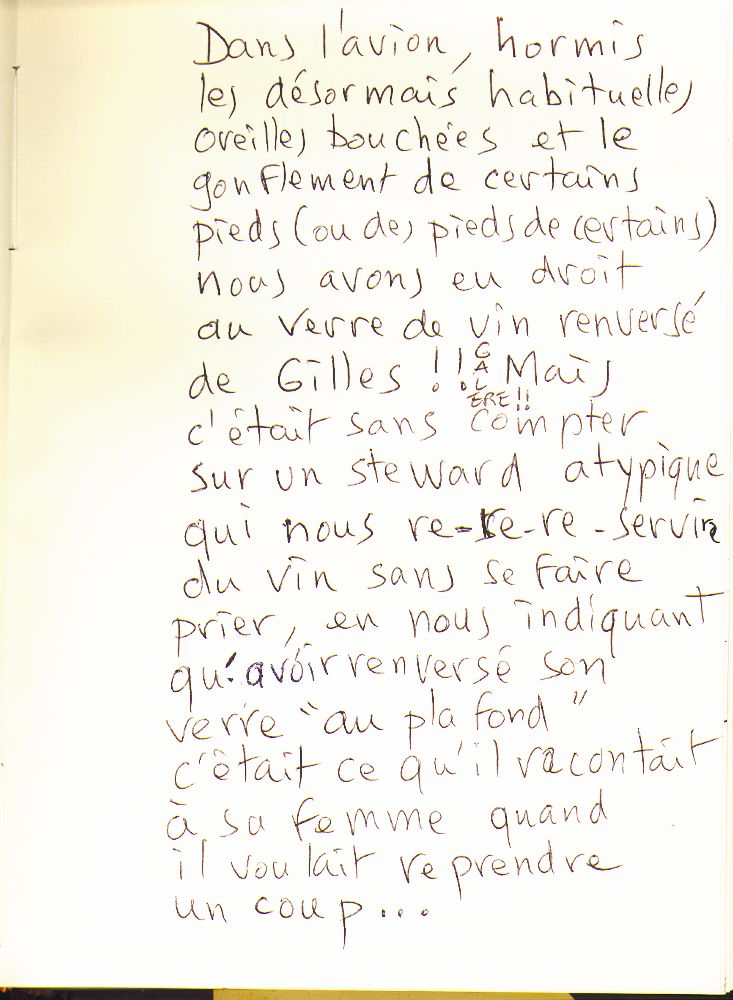 Dans l'avion, hormis
les désormais habituelles
oreilles bouchées et le
gonflement de certains
pieds (ou des pieds de certains)
nous avons eu droit
au verre de vin renversé
de Gilles !! GALÈRE!! Mais
c'était sans compter
sur un steward atypique
qui nous re-re-re-servir
du vin sans se faire
prier, en nous indiquant
qu'avoir renversé son
verre "au plafond"
c'était ce qu'il racontait
à sa femme quand
il voulait reprendre
un coup...